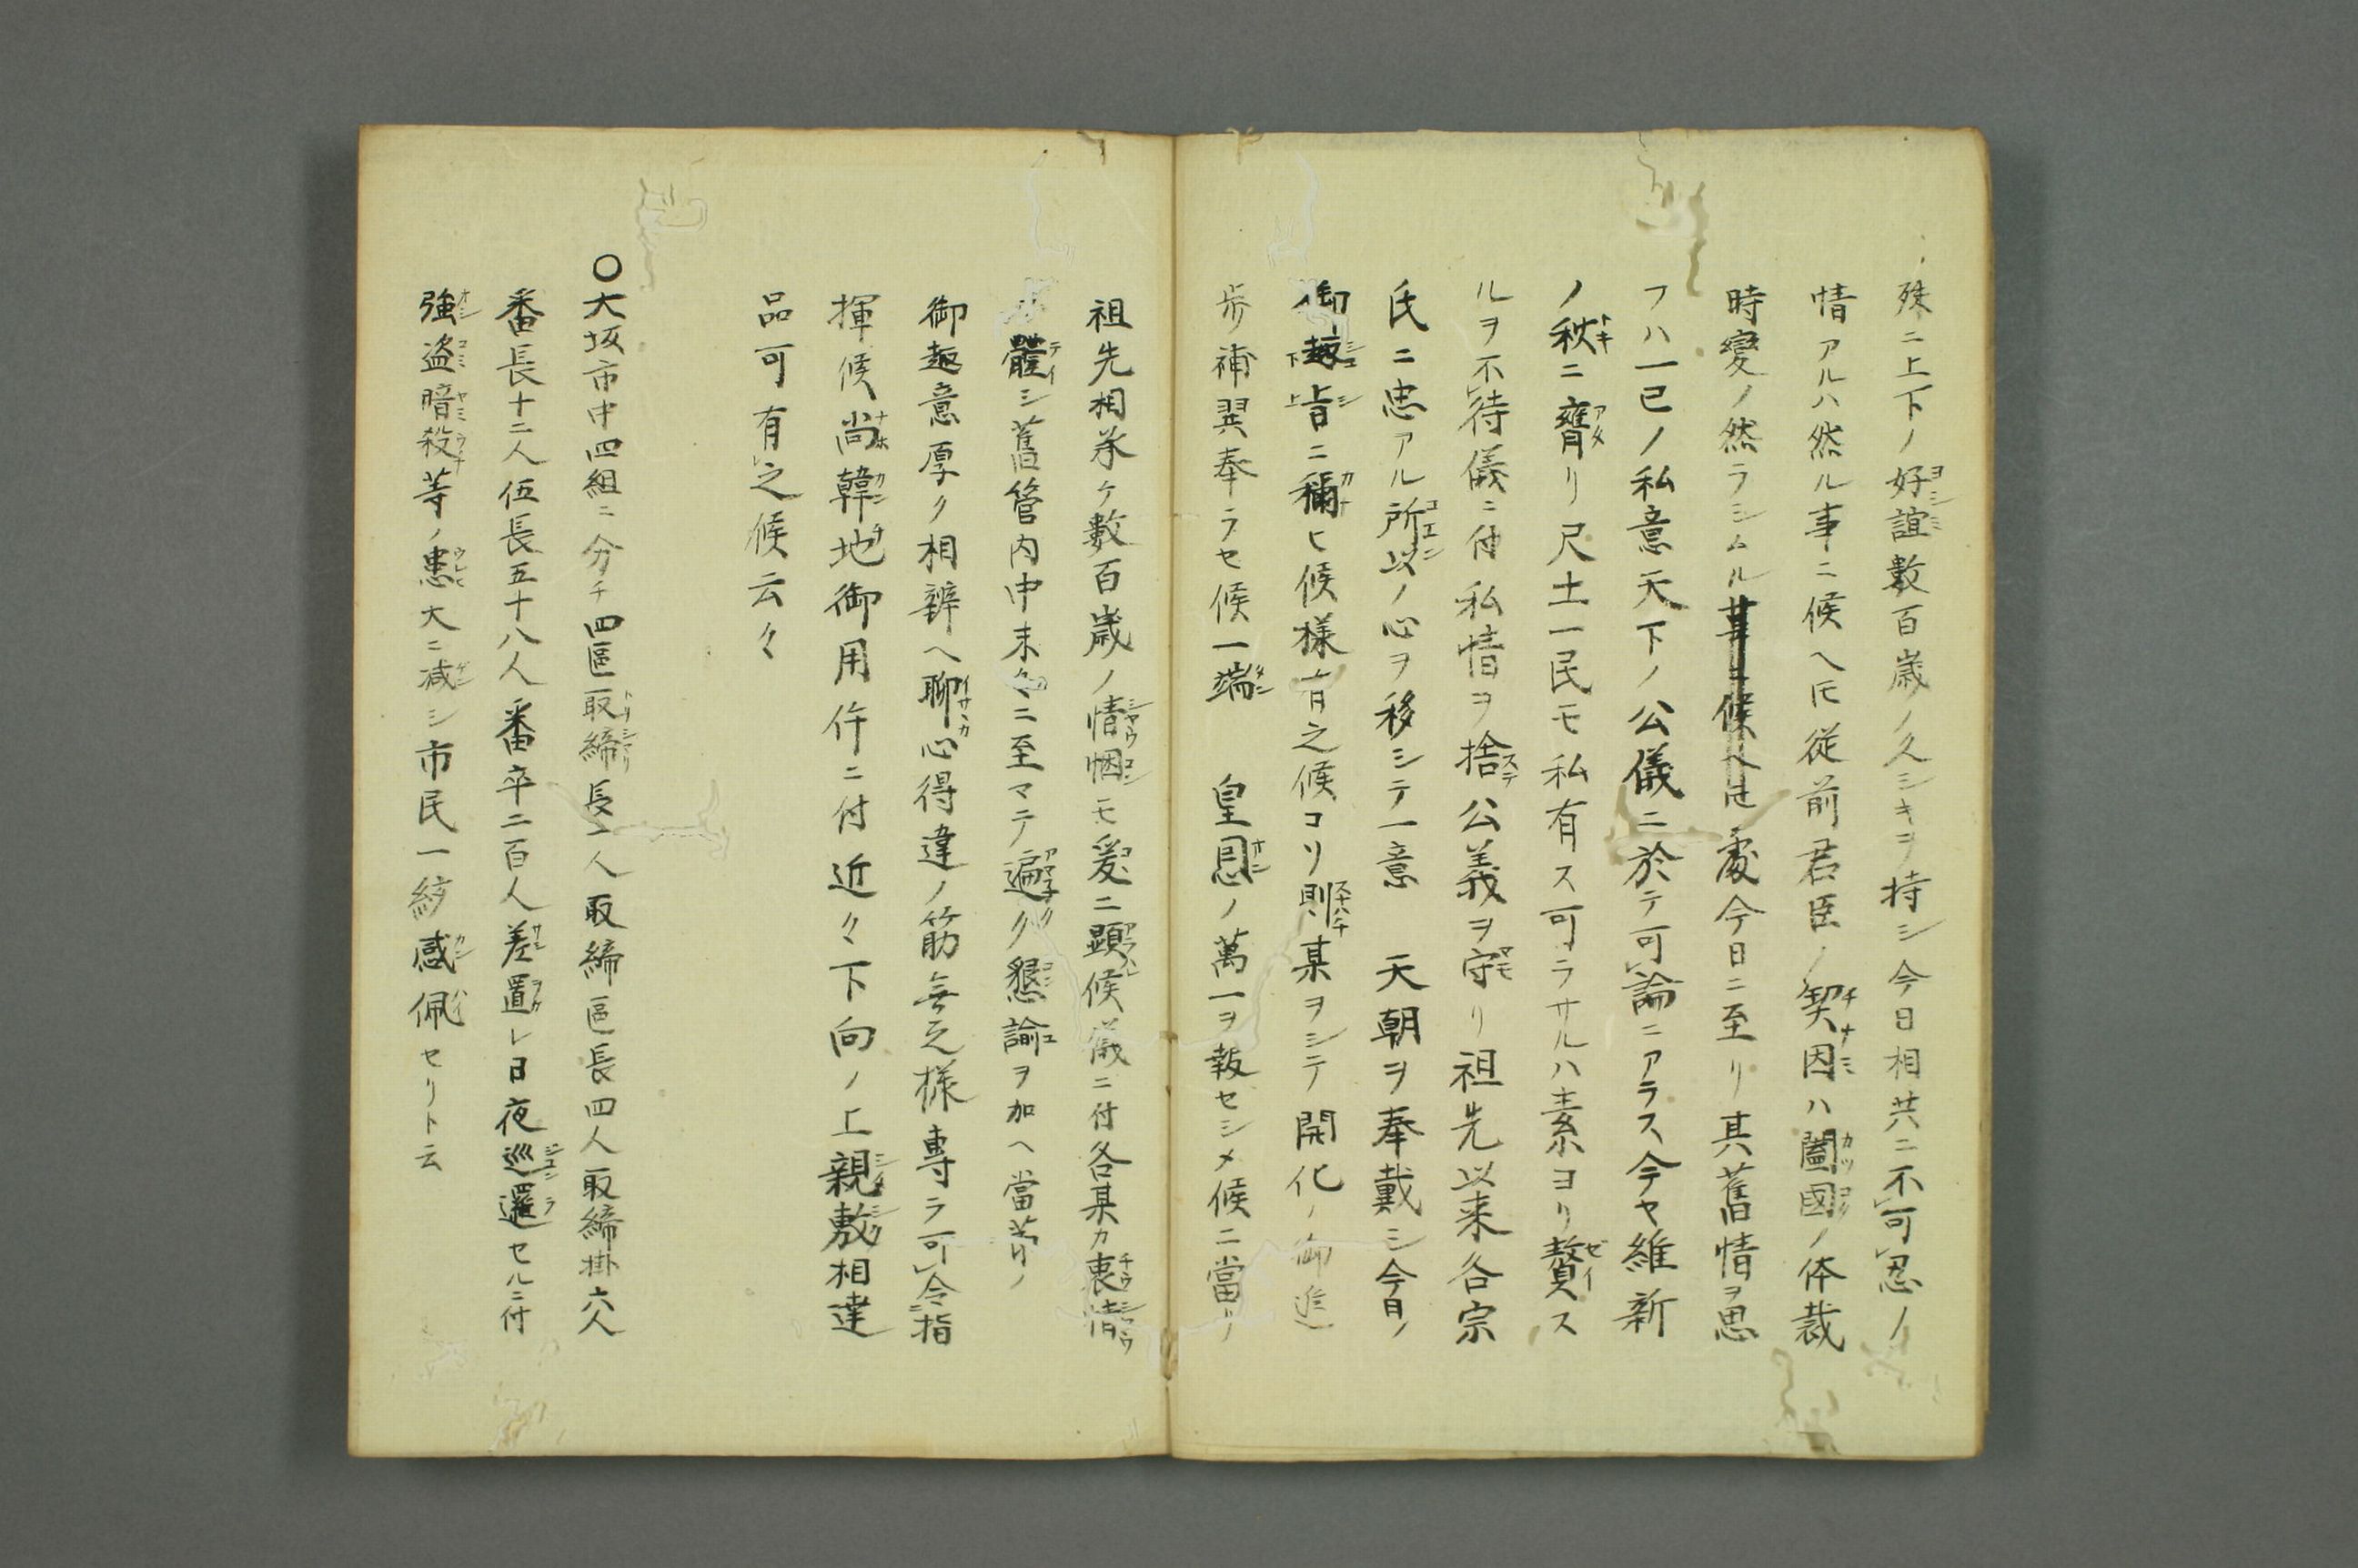 殊ニ上下ノ好誼數百歳ノ久シキヲ持シ今日相共ニ不可忍ノ
情アルハ然ル事ニ候ヘ𪜈従前君臣ノ契因ハ闔國ノ体裁
時變ノ然ラシムル處今日ニ至リ其舊情ヲ思
フハ一已ノ私意天下ノ公儀ニ於テ可論ニアラス今ヤ維新
ノ秋ニ膺リ尺土一民モ私有ス可ラサルハ素ヨリ贅ス
ルヲ不待儀ニ付私情ヲ捨公義ヲ守リ祖先以来各宗
氏ニ忠アル所以ノ心ヲ移シテ一意　天朝ヲ奉戴シ今日ノ
御趣旨ニ稱ヒ候様有之候コリ則某ヲシテ開化ノ御進
歩補翼奉ラセ候一端　皇恩ノ萬一ヲ報セシメ候ニ當リ
祖先相承ケ數百歳ノ情悃モ爰ニ顕候儀ニ付各某カ衷情
體シ舊管内中末々ニ至マテ遍ク懇諭ヲ加ヘ當節ノ
御趣意厚ク相辨ヘ聊心得違ノ筋無之様専ラ可令指
揮候尚韓地御用仵ニ付近々下向ノ上親敷相達
品可有之候云々
〇大坂市中四組ニ分チ四區取締長二人取締區長四人取締掛六人
番長十二人伍長五十八人番卒二百人差置レ日夜巡邏セルニ付
強盗暗殺等ノ患大ニ減シ市民一統感佩セリト云